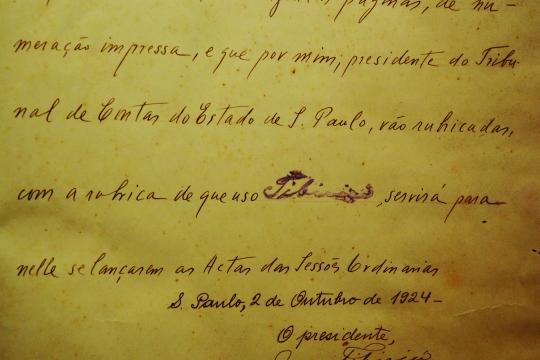 paginas, de nu-
meração impressa, e que por mim, presidente do Tribu-
nal de Contas do Estado de S. Paulo, vão rubricadas,
com a rubrica de que uso Tibiriçá, servirá para
nelle se lançarem as Actas das Sessões Ordinarias
S. Paulo, 2 de Outubro de 1924-
O presidente,